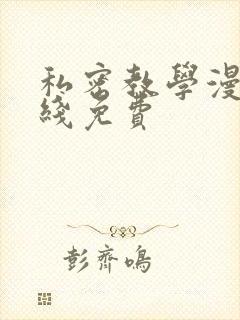 私密教學漫
綫免費
彭齊鳴